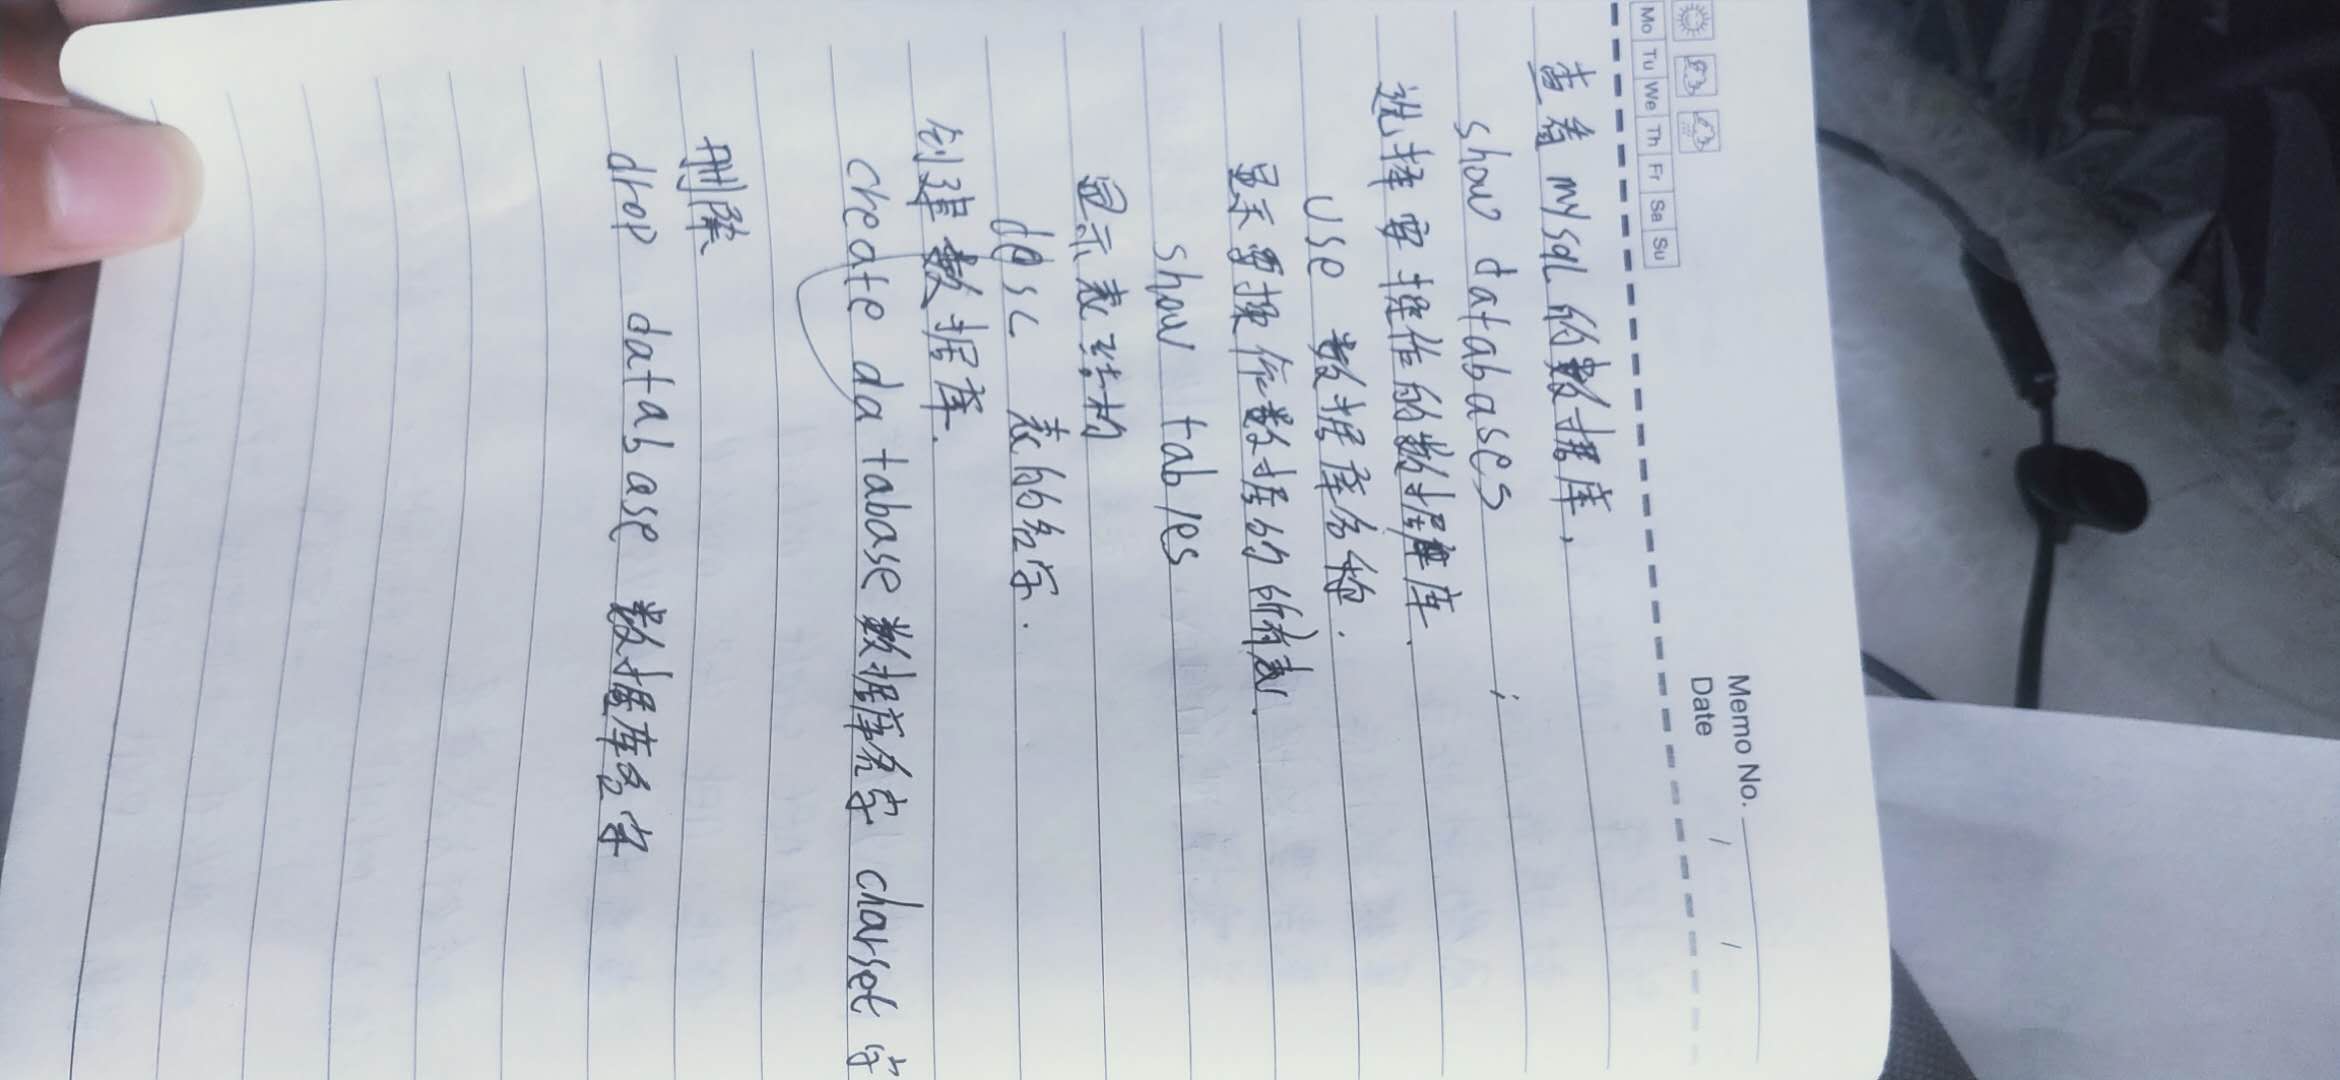 Memo No.
Mo Tu We Th Fr Sa Su
Date / /
查看 mysql 的数据库,
show databases ;
选择要操作的数据库.
use 数据库名称.
显示要操作数据库的所有表.
show tables
显示表结构
desc 表的名字.
创建数据库.
create database 数据库名字 charset 字
删除
drop database 数据库名字